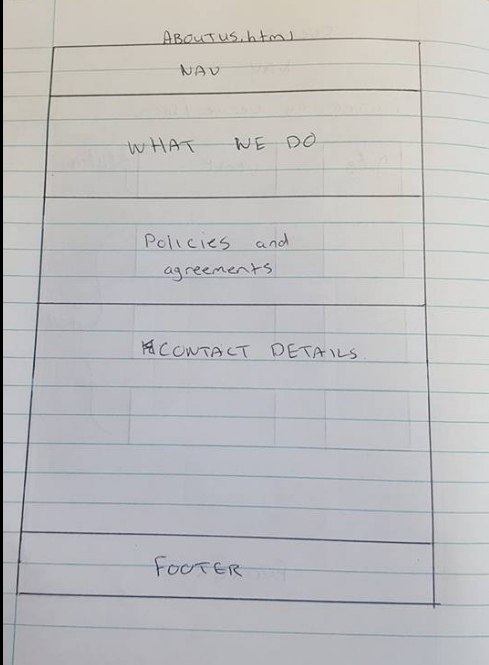 ABOUTUS.html
NAV
WHAT WE DO
Policies and
agreements
CONTACT DETAILS
FOOTER